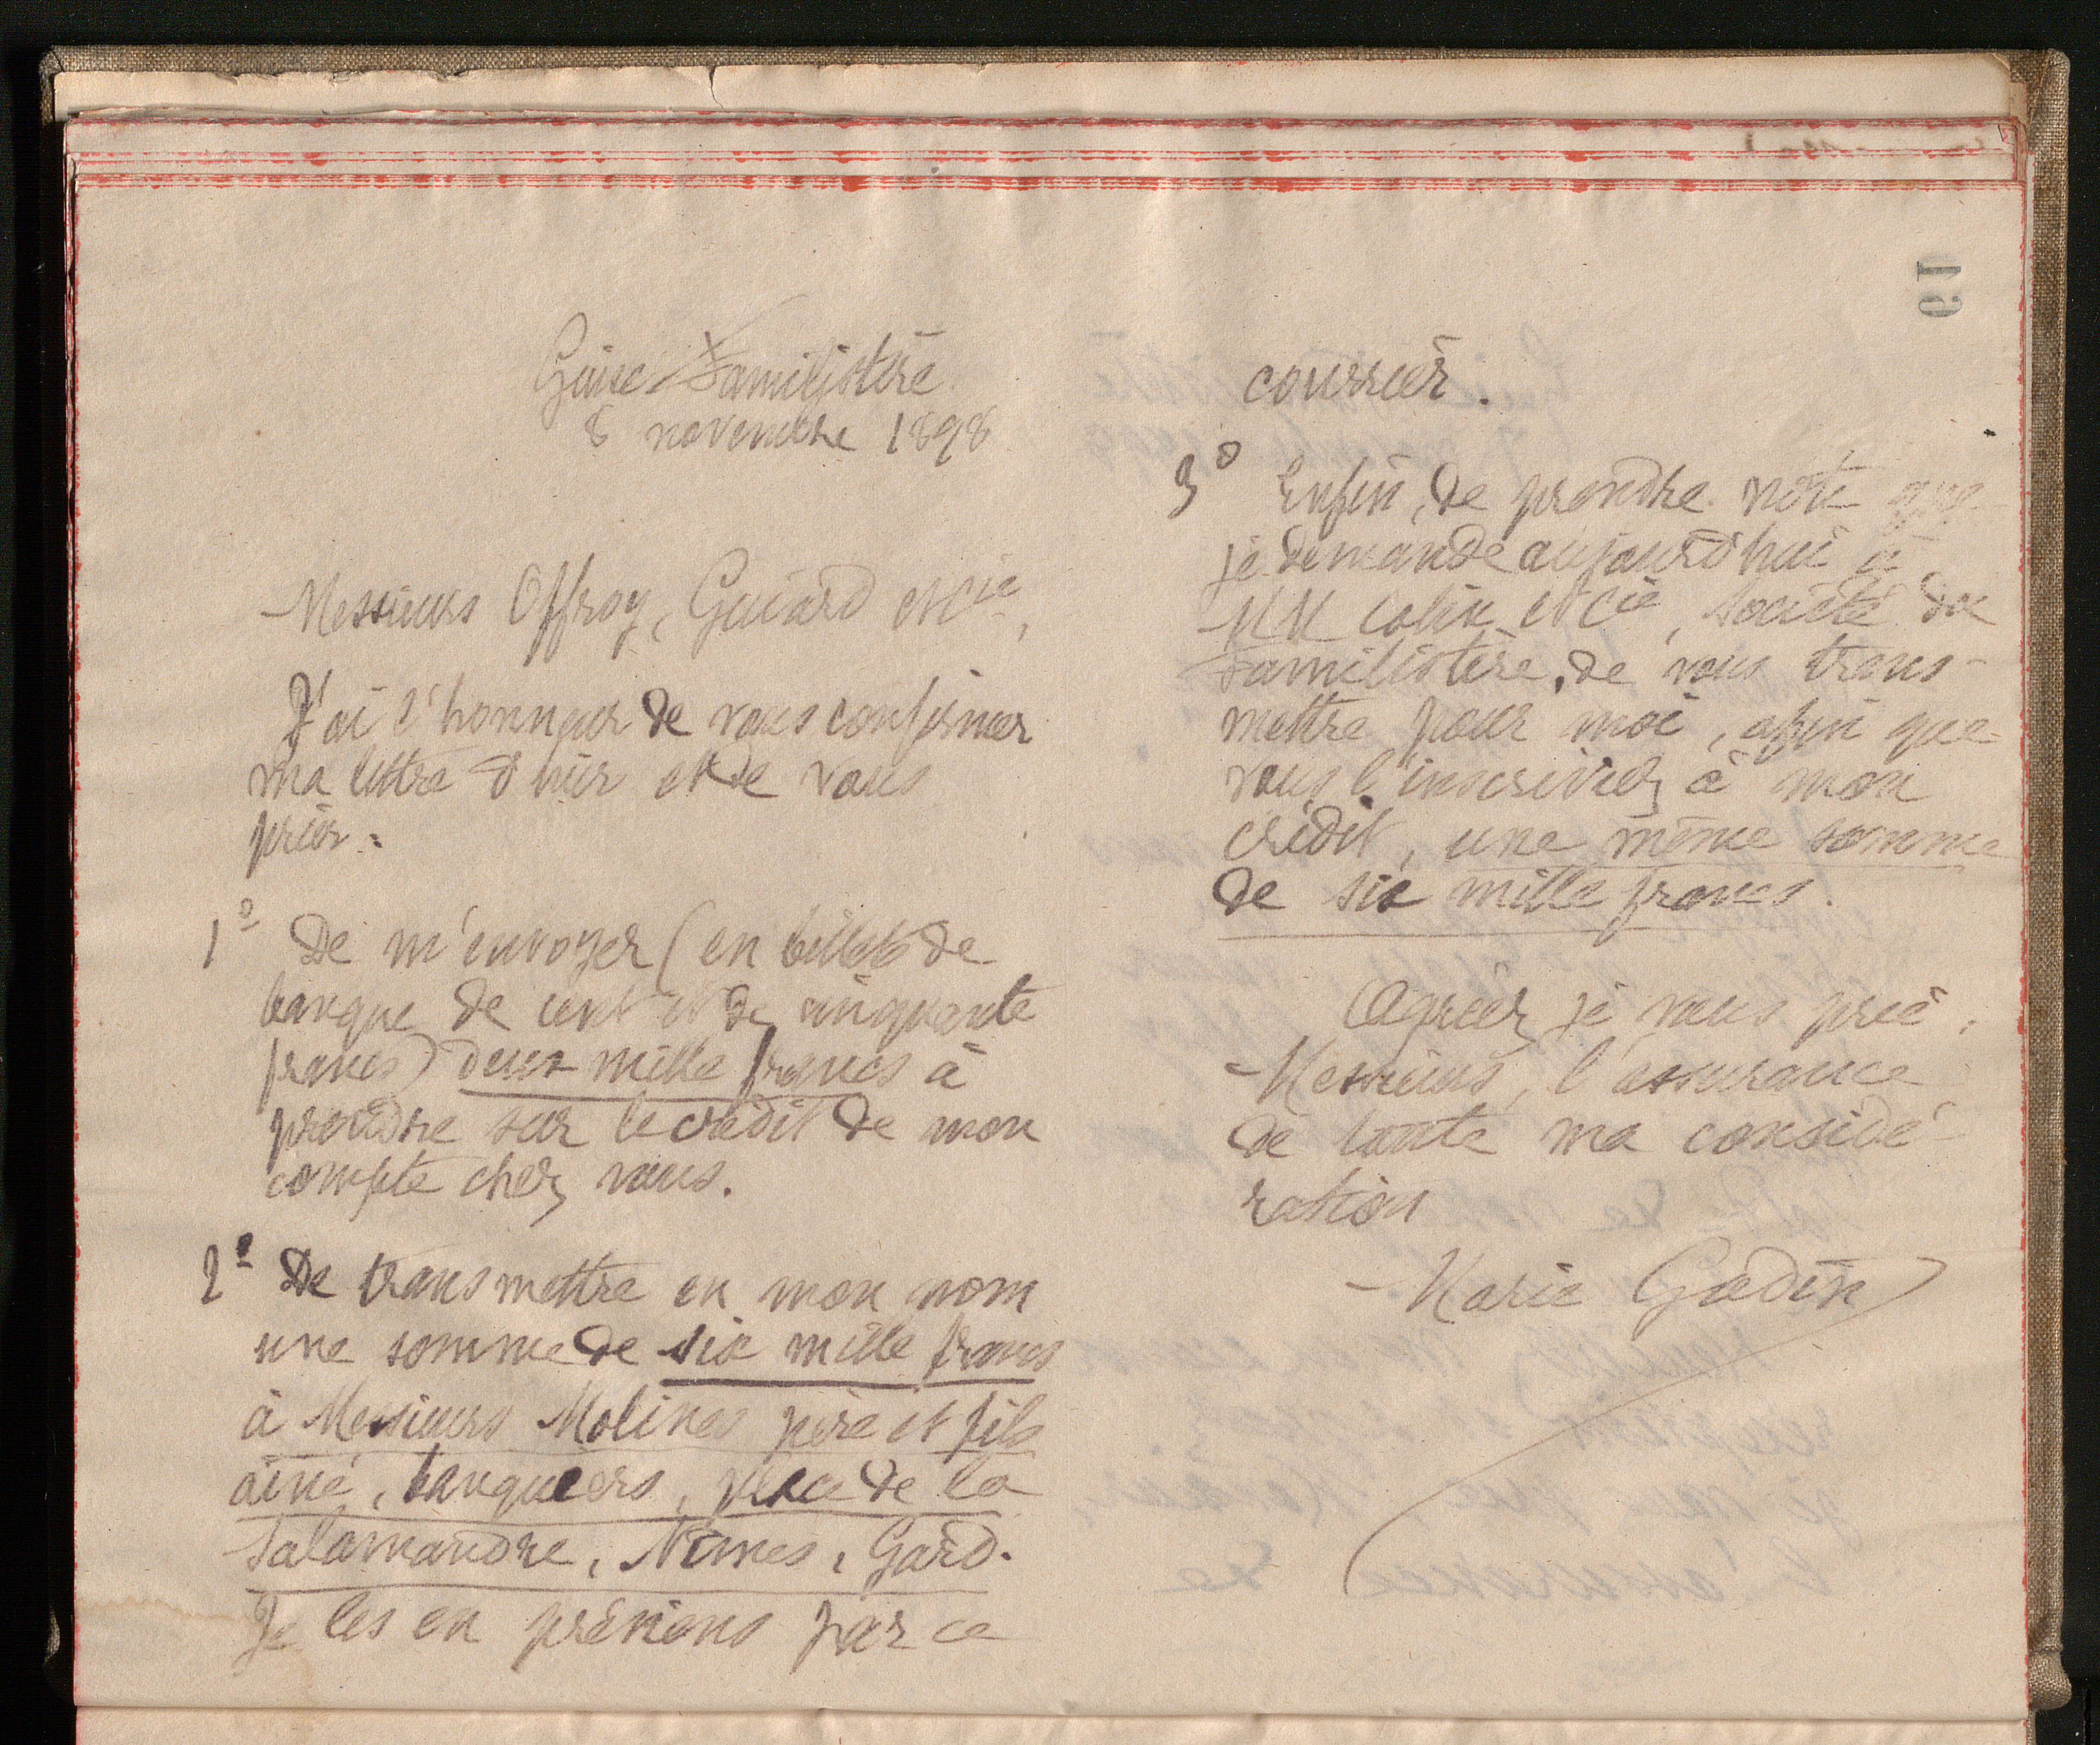 Guise Familistère
8 novembre 1898
Messieurs Offroy, Guiard et Cie,
J'ai l'honneur de vous confirmer
ma lettre d'hier et de vous
prier :
1º De m'envoyer (en billets de
banque de cent et de cinquante
francs) deux mille francs à
prendre sur le crédit de mon
compte chez vous.
2º De transmettre en mon nom
une somme de six mille francs
à Messieurs Molines père et fils
aîné, banquiers, place de la
Salamandre, Nîmes, Gard.
Je les en préviens par ce
19
courrier.
3º Enfin, de prendre note que
je demande aujourd'hui à
MM Colin et Cie, Société du
Familistère, de vous trans-
mettre pour moi, afin que
vous l'inscriviez à mon
crédit, une même somme
de six mille francs.
Agréez, je vous prie,
Messieurs, l'assurance
de toute ma considé-
ration
Marie Godin